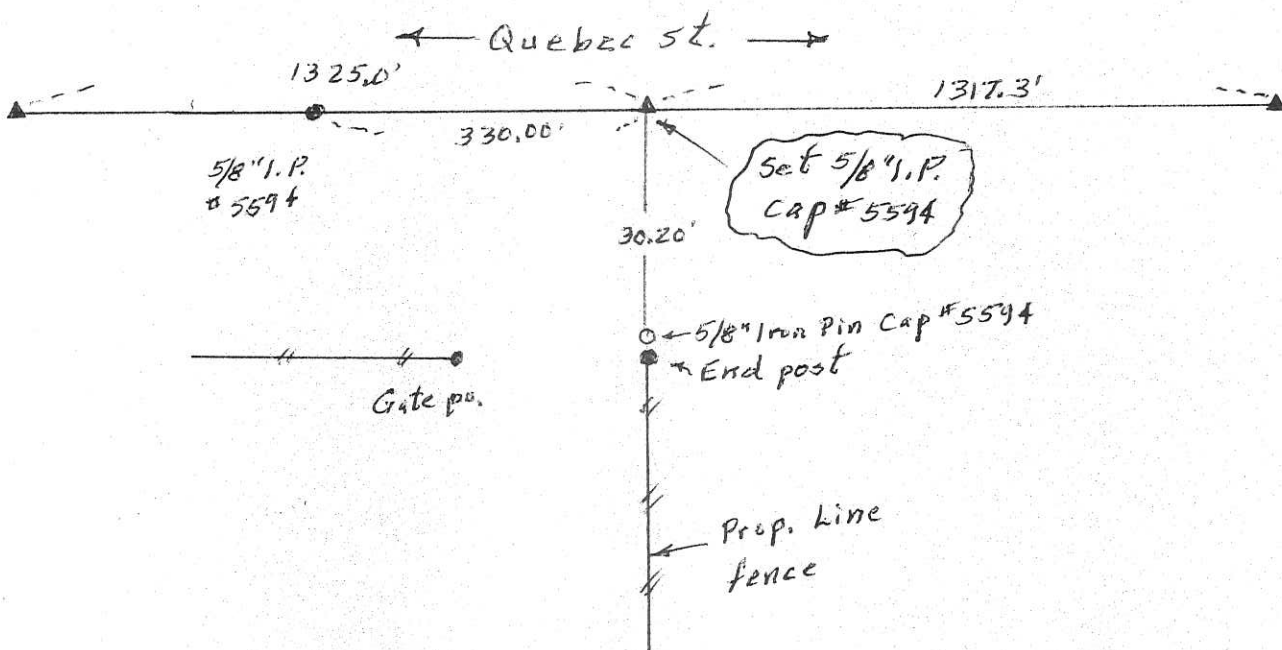 Quebec St.
1325.0'
1317.3'
330.00'
5/8" I.P.
#5594
Set 5/8" I.P.
Cap #5594
30.20'
5/8" Iron Pin Cap #5594
End post
Gate po.
Prop. Line
fence